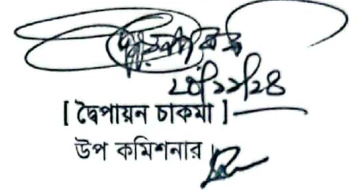 ২৪/১১/২৪
[ দ্বৈপায়ন চাকমা ]
উপ কমিশনার